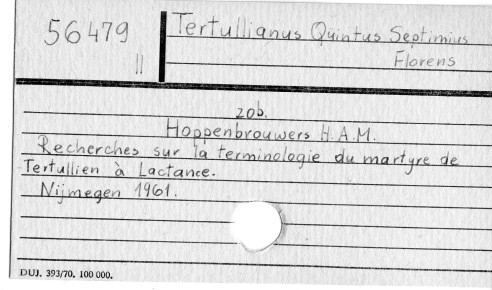 56479
II
Tertullianus Quintus Septimius
Florens
zob.
Hoppenbrouwers H.A.M.
Recherches sur la terminologie du martyre de
Tertullien à Lactance.
Nijmegen 1961.
DUJ. 393/70. 100 000.